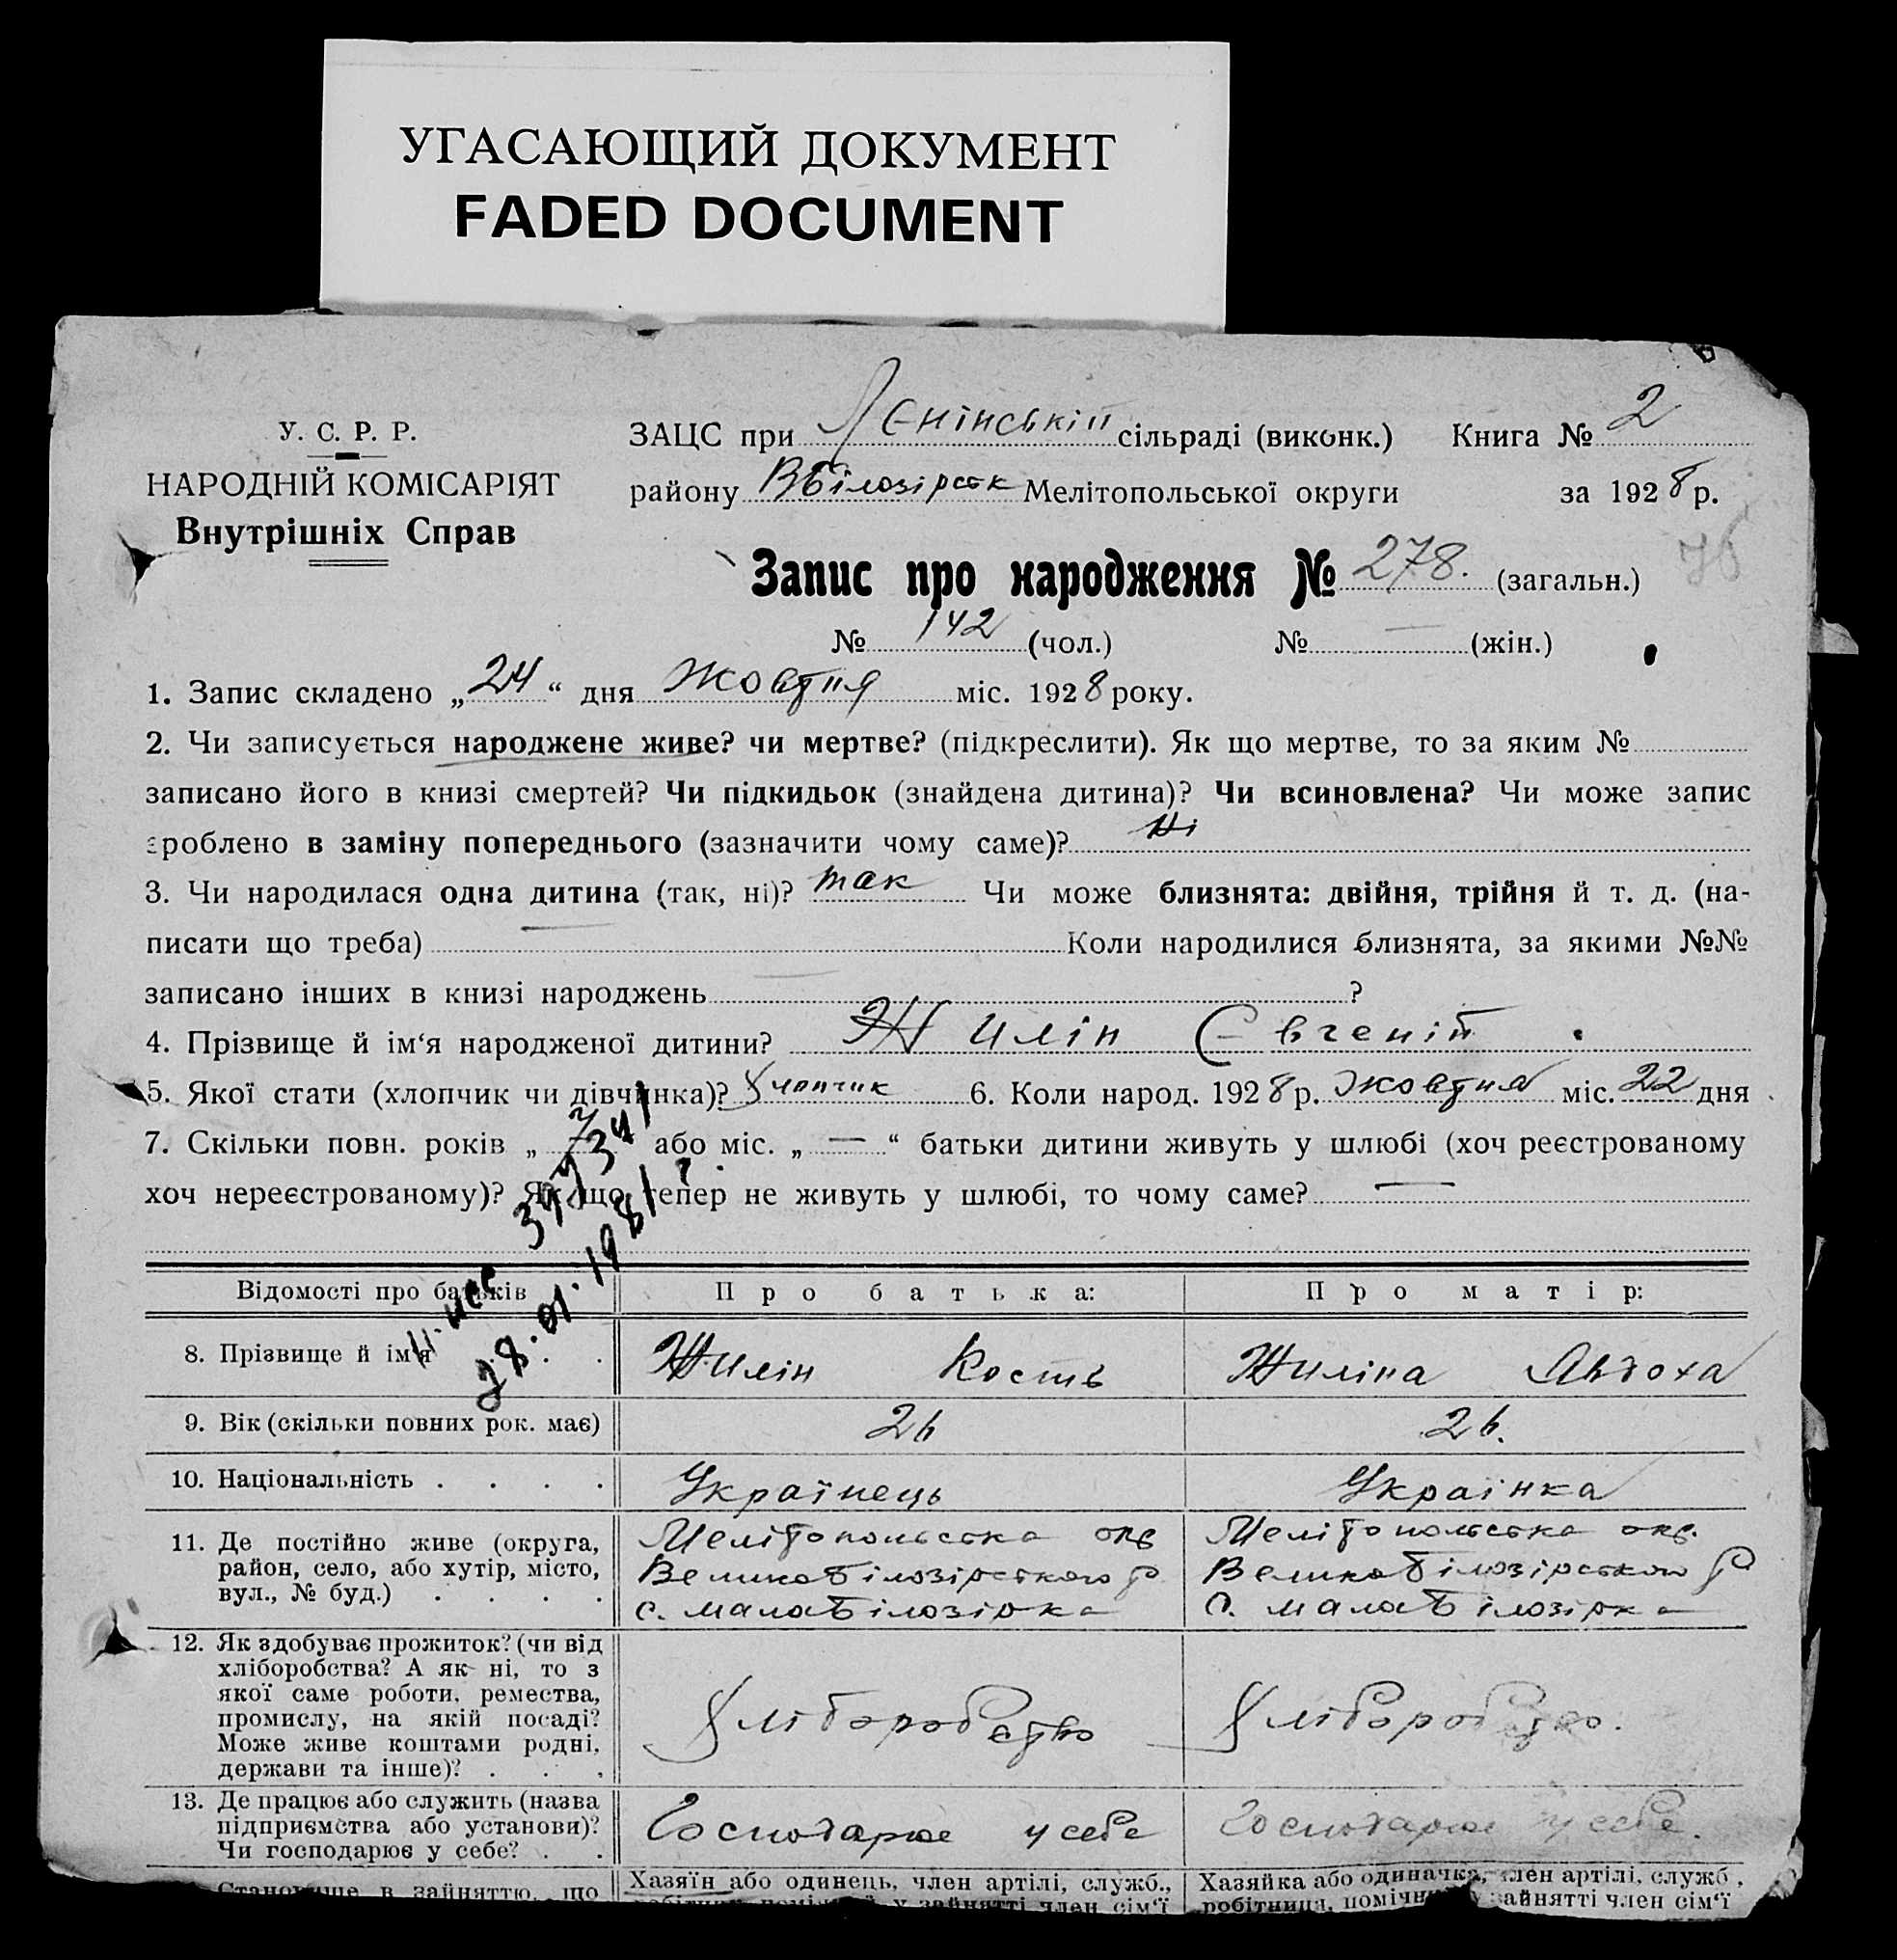 УГАСАЮЩИЙ ДОКУМЕНТ
FADED DOCUMENT
У. С. Р. Р.
НАРОДНІЙ КОМІСАРІЯТ
Внутрішніх Справ
ЗАЦС при Лєнінській сільраді (виконк.) Книга № 2
району ВБілозірськ Мелітопольської округи за 1928 р.
Запис про народження № 278. (загальн.)
№ 142 (чол.) № — (жін.)
1. Запис складено „24“ дня Жовтня міс. 1928 року.
2. Чи записується народжене живе? чи мертве? (підкреслити). Як що мертве, то за яким №
записано його в книзі смертей? Чи підкидьок (знайдена дитина)? Чи всиновлена? Чи може запис
зроблено в заміну попереднього (зазначити чому саме)? Ні
3. Чи народилася одна дитина (так, ні)? так Чи може близнята: двійня, трійня й т. д. (на-
писати що треба) — Коли народилися близнята, за якими №№
записано інших в книзі народжень — ?
4. Прізвище й ім‘я народженої дитини? Жилін Євгеній
5. Якої стати (хлопчик чи дівчинка)? Хлопчик 6. Коли народ. 1928 р. Жовтня міс. 22 дня
7. Скільки повн. років „7“ або міс. „—“ батьки дитини живуть у шлюбі (хоч реєстрованому
хоч нереєстрованому)? Як що тепер не живуть у шлюбі, то чому саме? —
28.01.1981
Відомості про батьків Про батька: Про матір:
8. Прізвище й ім‘я Жилін Кость Жиліна Явдоха
9. Вік (скільки повних рок. має) 26 26.
10. Національність . . . . Українець Українка
11. Де постійно живе (округа, район, село, або хутір, місто, вул., № буд.) . . . .
Мелітопольська окр
ВеликоБілозірського р
с. малаБілозірка
Мелітопольська окр.
ВеликоБілозірського р
с. малаБілозірка
12. Як здобуває прожиток? (чи від
хліборобства? А як ні, то з
якої саме роботи, ремества,
промислу, на якій посаді?
Може живе коштами родні,
держави та інше)? . . .
Хліборобство Хліборобство.
13. Де працює або служить (назва
підприємства або установи)?
Чи господарює у себе? . .
Господарює у себе Господарює у себе.
Становище в зайняттю, що
Хазяїн або одинець, член артілі, служб.,
у зайнятті член сім‘ї
Хазяйка або одиначка, член артілі, служб.,
робітниця, зайнятті член сім‘ї